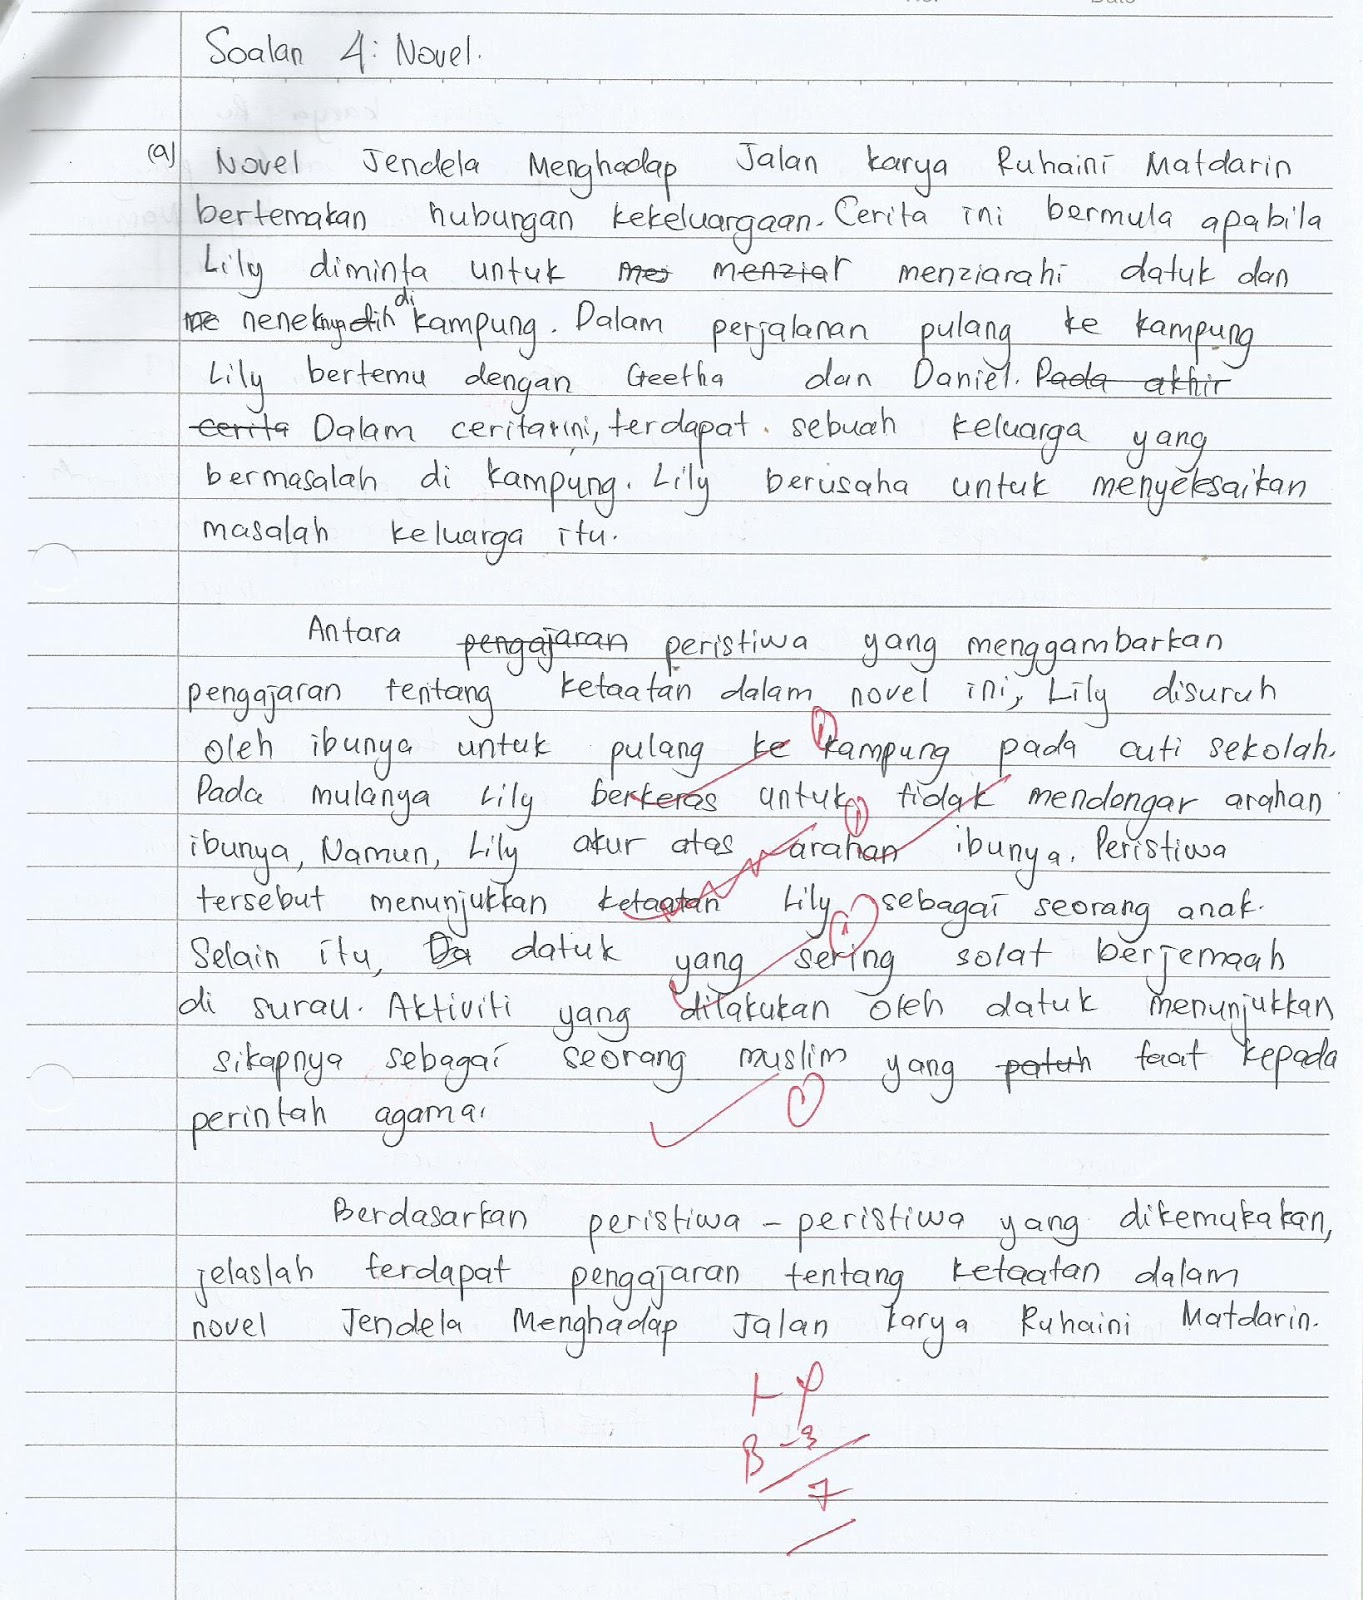 Soalan 4: Novel.
(a) Novel Jendela Menghadap Jalan karya Ruhaini Matdarin
bertemakan hubungan kekeluargaan. Cerita ini bermula apabila
Lily diminta untuk menziarahi datuk dan
nenek di kampung. Dalam perjalanan pulang ke kampung
Lily bertemu dengan Geetha dan Daniel. Pada akhir
cerita Dalam cerita ini, terdapat sebuah keluarga yang
bermasalah di kampung. Lily berusaha untuk menyelesaikan
masalah keluarga itu.
Antara pengajaran peristiwa yang menggambarkan
pengajaran tentang ketaatan dalam novel ini, Lily disuruh
oleh ibunya untuk pulang ke kampung pada cuti sekolah.
Pada mulanya Lily berkeras untuk tidak mendengar arahan
ibunya, Namun, Lily akur atas arahan ibunya. Peristiwa
tersebut menunjukkan ketaatan Lily sebagai seorang anak.
Selain itu, Da datuk yang sering solat berjemaah
di surau. Aktiviti yang dilakukan oleh datuk menunjukkan
sikapnya sebagai seorang muslim yang patuh taat kepada
perintah agama.
Berdasarkan peristiwa-peristiwa yang dikemukakan,
jelaslah terdapat pengajaran tentang ketaatan dalam
novel Jendela Menghadap Jalan karya Ruhaini Matdarin.
B - 3
7